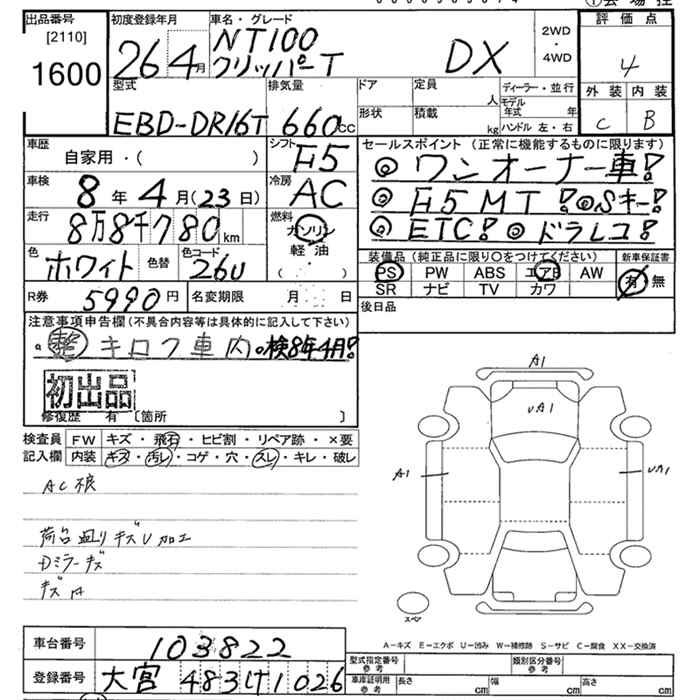 ①会場控
出品番号 [2110] 1600
初度登録年月 26 4月
車名・グレード NT100 クリッパーT DX
2WD・4WD
評価点 4
外装 C 内装 B
型式 EBD-DR16T
排気量 660cc
ドア 形状
定員 人 積載 kg
ディーラー・並行 モデル年式 年 ハンドル 左・右
車歴 自家用・( )
シフト F5
車検 8年4月(23日)
冷房 AC
走行 8万8千780km
燃料 ガソリン 軽油 ( )
色 ホワイト 色替 色コード 26U
R券 5990円 名変期限 月 日
セールスポイント(正常に機能するものに限ります)
◎ワンオーナー車!
◎F5MT!◎Sキー!
◎ETC!◎ドラレコ!
装備品(純正品に限り○をつけてください) 新車保証書
PS PW ABS エアB AW 有・無
SR ナビ TV カワ
後日品
注意事項申告欄(不具合内容等は具体的に記入して下さい)
整 キロク車内 検8年4月!
初出品
修復歴 有 〔箇所 〕
検査員記入欄
FW キズ・飛石・ヒビ割・リペア跡・×要
内装 キズ・汚レ・コゲ・穴・スレ・キレ・破レ
AC不良
荷台凹りキズU加工
Dミラーキズ
A1
UA1
A1
UA1
スペア
A-キズ E-エクボ U-凹み W-補修跡 S-サビ C-腐食 XX-交換済
車台番号 103822
登録番号 大宮 483け1026
型式指定番号 参考 類別区分番号 参考
車庫証明用 参考 長さ cm 幅 cm 高さ cm